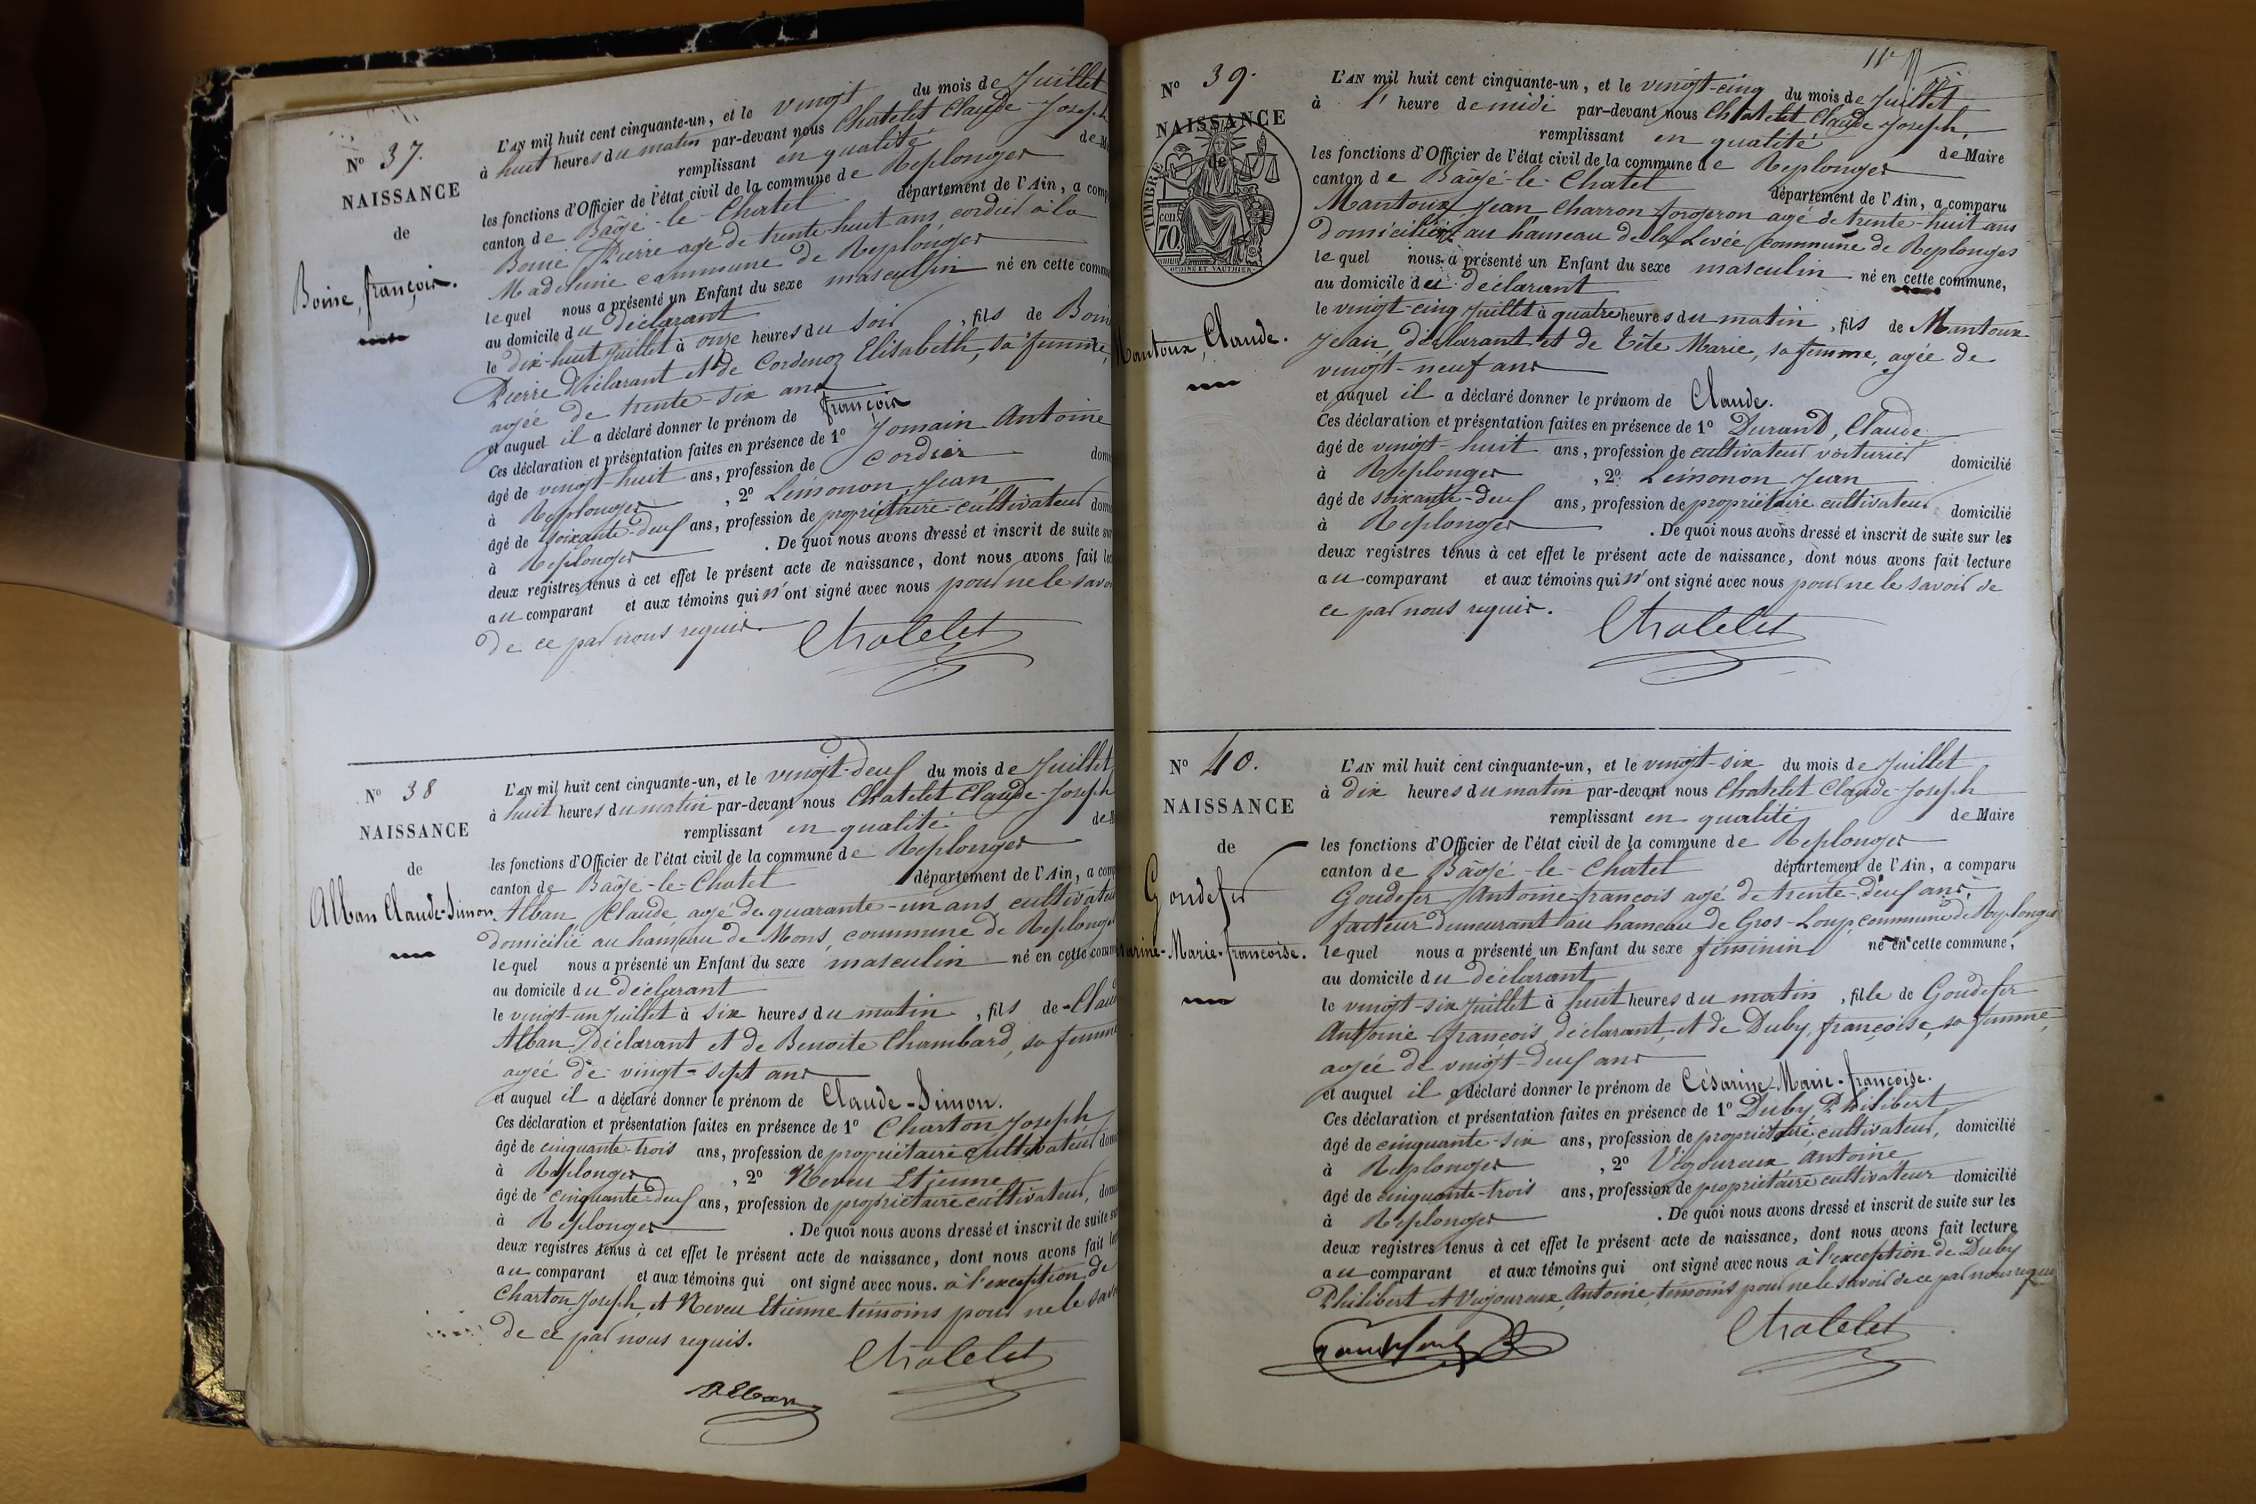 N° 37.
NAISSANCE
de
Boine, françois.
L'AN mil huit cent cinquante-un, et le vingt du mois de Juillet
à huit heures du matin par-devant nous Chatelet Claude-Joseph
remplissant en qualité de M
les fonctions d'Officier de l'état civil de la commune de Replonges
canton de Bâgé-le-Chatel département de l'Ain, a comp
Boine Pierre agé de trente-huit ans, cordier à la
Madeleine commune de Replonges
lequel nous a présenté un Enfant du sexe masculin né en cette commu
au domicile du déclarant
le dix-huit Juillet à onze heures du soir, fils de Boin
Pierre Déclarant et de Cordenoz Elisabeth, sa femme,
agée de trente-six ans
et auquel il a déclaré donner le prénom de françois
Ces déclaration et présentation faites en présence de 1° Jomain Antoine
âgé de vingt-huit ans, profession de cordier dom
à Replonges, 2° Lémonon Jean
âgé de soixante-deux ans, profession de propriétaire-cultivateur dom
à Replonges. De quoi nous avons dressé et inscrit de suite sur
deux registres tenus à cet effet le présent acte de naissance, dont nous avons fait lec
au comparant et aux témoins qui n'ont signé avec nous pour ne le savoi
de ce par nous requis.
Chatelet
N° 38
NAISSANCE
de
Alban Claude-Simon.
L'AN mil huit cent cinquante-un, et le vingt-deux du mois de Juillet
à huit heures du matin par-devant nous Chatelet Claude-Joseph
remplissant en qualité de M
les fonctions d'Officier de l'état civil de la commune de Replonges
canton de Bâgé-le-Chatel département de l'Ain, a comp
Alban Claude, agé de quarante-un ans cultivateur
domicilié au hameau de Mons, commune de Replonges
lequel nous a présenté un Enfant du sexe masculin né en cette comm
au domicile du déclarant
le vingt-un Juillet à six heures du matin, fils de Clau
Alban Déclarant et de Benoite Chambard, sa femme
agée de vingt-sept ans
et auquel il a déclaré donner le prénom de Claude-Simon.
Ces déclaration et présentation faites en présence de 1° Charton Joseph
âgé de cinquante-trois ans, profession de propriétaire cultivateur dom
à Replonges, 2° Neveu Etienne
âgé de cinquante-deux ans, profession de propriétaire cultivateur, dom
à Replonges. De quoi nous avons dressé et inscrit de suite su
deux registres tenus à cet effet le présent acte de naissance, dont nous avons fait le
au comparant et aux témoins qui ont signé avec nous. à l'exception de
Charton Joseph, et Neveu Etienne témoins pour ne le savoi
de ce par nous requis.
Chatelet
Alban
N° 39.
NAISSANCE
de
TIMBRE
cen
70
OUDINE ET VAUTHIER
Mantoux, Claude.
11e
L'AN mil huit cent cinquante-un, et le vingt-cinq du mois de Juillet
à l' heure de midi par-devant nous Chatelet Claude Joseph,
remplissant en qualité de Maire
les fonctions d'Officier de l'état civil de la commune de Replonges
canton de Bâgé-le-Chatel département de l'Ain, a comparu
Mantoux, Jean Charron-forgeron agé de trente-huit ans
domicilié au hameau de la Levée commune de Replonges
lequel nous a présenté un Enfant du sexe masculin né en cette commune,
au domicile du déclarant
le vingt-cinq Juillet à quatre heures du matin, fils de Mantoux
Jean, déclarant et de Tête Marie, sa femme, agée de
vingt-neuf ans
et auquel il a déclaré donner le prénom de Claude.
Ces déclaration et présentation faites en présence de 1° Durand, Claude
âgé de vingt-huit ans, profession de cultivateur voiturier domicilié
à Replonges, 2° Lémonon Jean
âgé de soixante-deux ans, profession de propriétaire cultivateur domicilié
à Replonges. De quoi nous avons dressé et inscrit de suite sur les
deux registres tenus à cet effet le présent acte de naissance, dont nous avons fait lecture
au comparant et aux témoins qui n'ont signé avec nous pour ne le savoir de
ce par nous requis.
Chatelet
N° 40.
NAISSANCE
de
Goudefer
Césarine-Marie-françoise.
L'AN mil huit cent cinquante-un, et le vingt-six du mois de Juillet
à dix heures du matin par-devant nous Chatelet Claude-Joseph
remplissant en qualité de Maire
les fonctions d'Officier de l'état civil de la commune de Replonges
canton de Bâgé-le-Chatel département de l'Ain, a comparu
Goudefer Antoine-françois agé de trente-deux ans,
facteur demeurant au hameau de Gros-Loup commune de Replonges
lequel nous a présenté un Enfant du sexe féminin né en cette commune,
au domicile du déclarant
le vingt-six Juillet à huit heures du matin, fille de Goudefer
Antoine-françois, déclarant, et de Duby, françoise, sa femme,
agée de vingt-deux ans
et auquel il a déclaré donner le prénom de Césarine-Marie-françoise.
Ces déclaration et présentation faites en présence de 1° Duby, Philibert
âgé de cinquante-six ans, profession de propriétaire cultivateur, domicilié
à Replonges, 2° Vigoureux Antoine
âgé de cinquante-trois ans, profession de propriétaire cultivateur domicilié
à Replonges. De quoi nous avons dressé et inscrit de suite sur les
deux registres tenus à cet effet le présent acte de naissance, dont nous avons fait lecture
au comparant et aux témoins qui ont signé avec nous à l'exception de Duby
Philibert et Vigoureux, Antoine, témoins pour ne le savoir de ce par nous requis
Chatelet